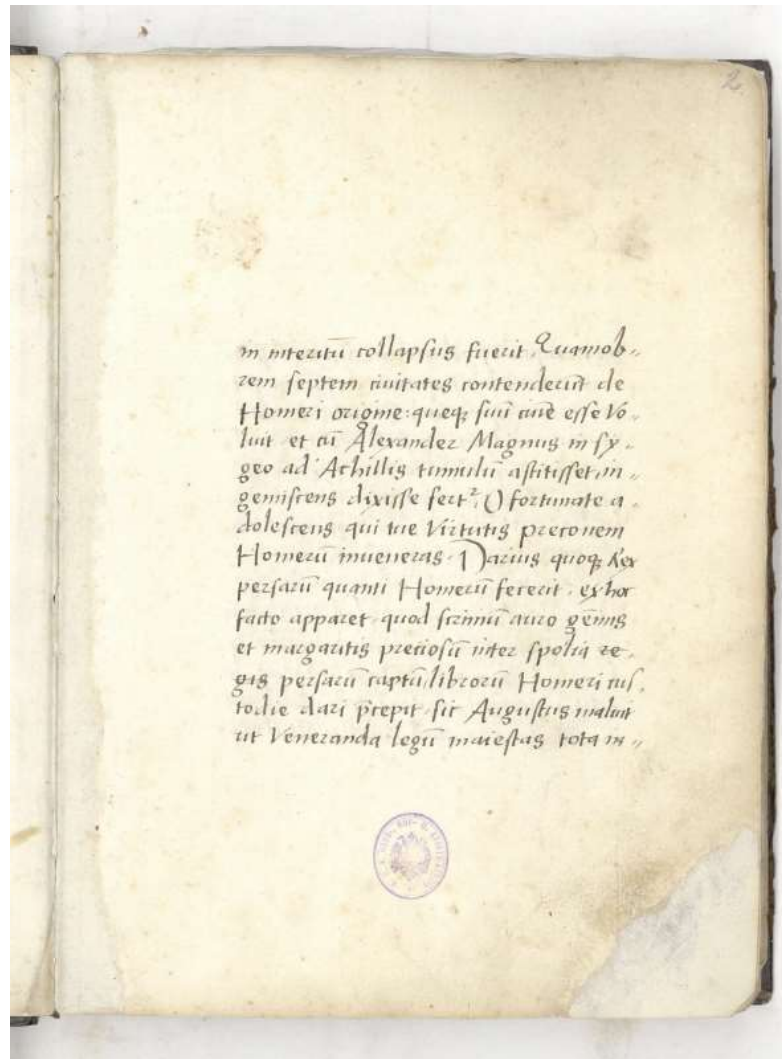 2
in interitū collapsus fuerit. Quamob„
rem septem ciuitates contenderūt de
Homeri origine: queq; suū ciuē esse vo„
luit et cū Alexander Magnus in sy„
geo ad Achillis tumulū astitisset, in„
gemiscens dixisse fert², O fortunate a„
dolescens qui tue virtutis preconem
Homerū inueneras. Darius quoq; Rex
persarū quanti Homerū fecerit, ex hoc
facto apparet quod scriniū auro gēmis
et margaritis preciosū inter spolia re„
gis persarū captū librorū Homeri cus„
todie dari p̄cepit sic Augustus maluit
ut Veneranda legū maiestas tota in„